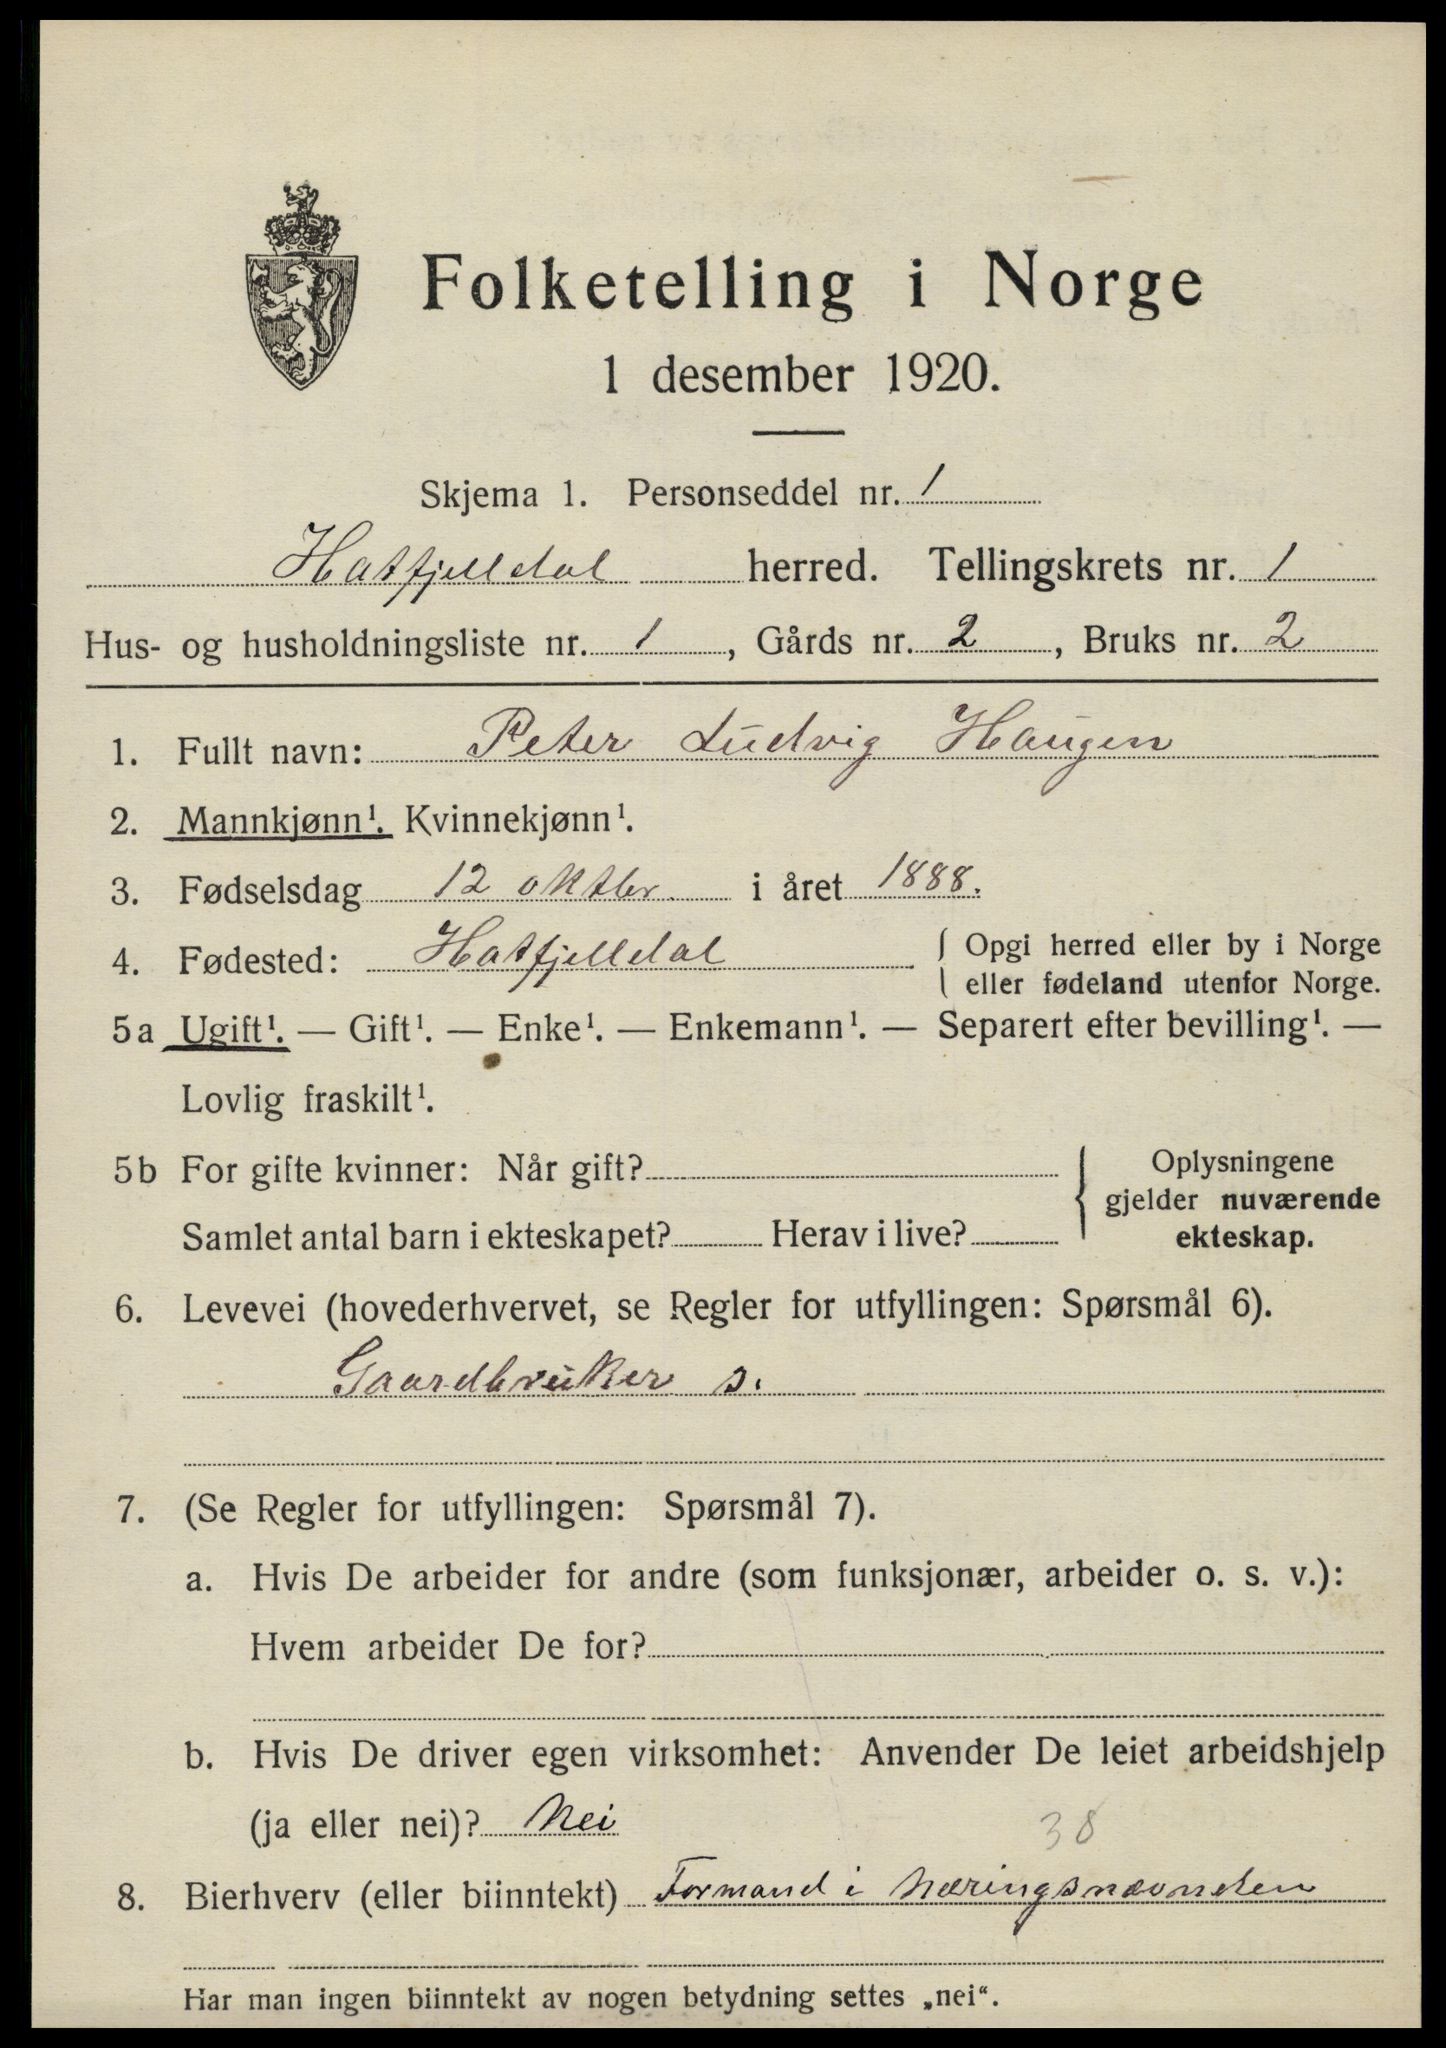 Folketelling i Norge
1 desember 1920.
Skjema 1. Personseddel nr. 1
Hatfjelldal herred. Tellingskrets nr. 1
Hus- og husholdningsliste nr. 1, Gårds nr. 2, Bruks nr. 2
1. Fullt navn: Peter Ludvig Haugen
2. Mannkjønn¹. Kvinnekjønn¹.
3. Fødselsdag 12 oktbr. i året 1888.
4. Fødested: Hatfjelldal { Opgi herred eller by i Norge
eller fødeland utenfor Norge.
5a Ugift¹. — Gift¹. — Enke¹. — Enkemann¹. — Separert efter bevilling¹. —
Lovlig fraskilt¹.
5b For gifte kvinner: Når gift?
Samlet antal barn i ekteskapet? Herav i live?
{ Oplysningene
gjelder nuværende
ekteskap.
6. Levevei (hovederhvervet, se Regler for utfyllingen: Spørsmål 6).
Gaardbruker s.
7. (Se Regler for utfyllingen: Spørsmål 7).
a. Hvis De arbeider for andre (som funksjonær, arbeider o. s. v.):
Hvem arbeider De for?
b. Hvis De driver egen virksomhet: Anvender De leiet arbeidshjelp
(ja eller nei)? Nei
38
8. Bierhverv (eller biinntekt) Formand i Næringsnævnden
Har man ingen biinntekt av nogen betydning settes „nei“.